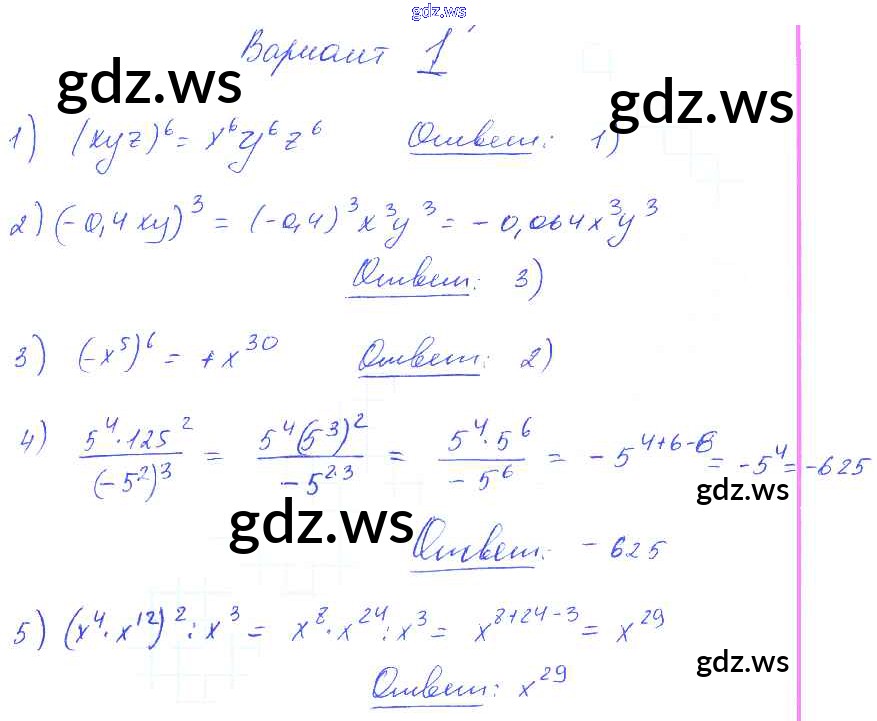 gdz.ws
Вариант 1
gdz.ws
gdz.ws
1) (xyz)^6 = x^6y^6z^6 Ответ: 1)
2) (-0,4xy)^3 = (-0,4)^3x^3y^3 = -0,064x^3y^3
Ответ: 3)
3) (-x^5)^6 = +x^30 Ответ: 2)
4) (5^4·125^2)/((-5^2)^3) = (5^4(5^3)^2)/(-5^(2·3)) = (5^4·5^6)/(-5^6) = -5^(4+6-6) = -5^4 = -625
gdz.ws
gdz.ws
Ответ: -625
5) (x^4·x^12)^2:x^3 = x^8·x^24:x^3 = x^(8+24-3) = x^29
gdz.ws
Ответ: x^29